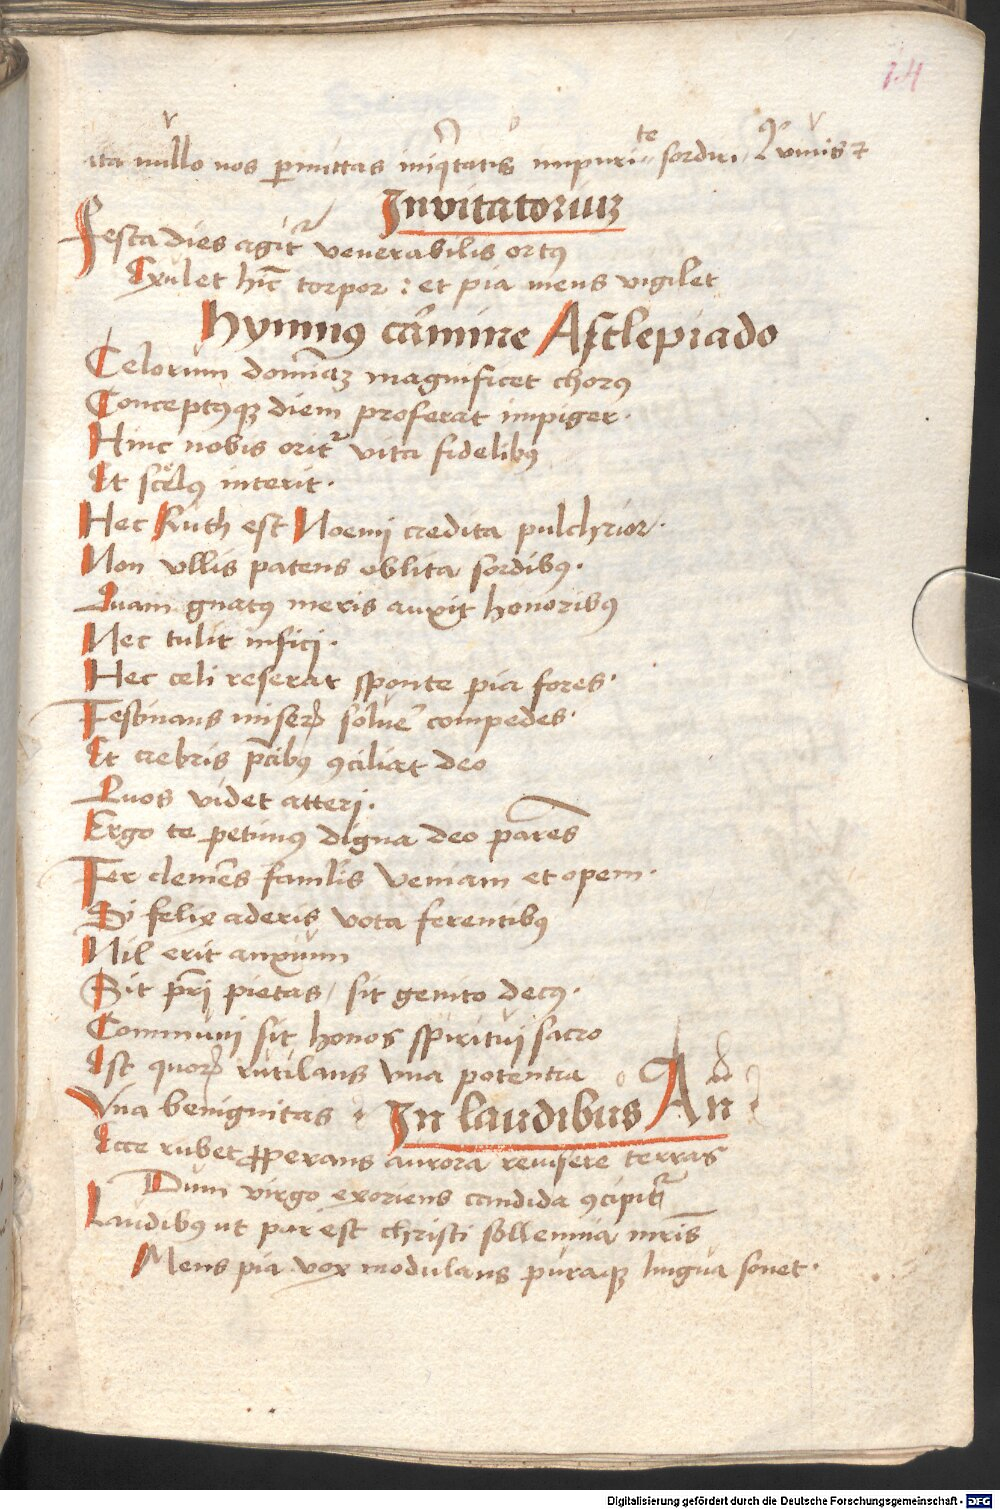 14
ita nullo nos permittas iniqitatis impuritate sordidi. Qui vivis et
Invitatorium
Festa dies agitr venerabilis ortus
Exulet hinc torpor : et pia mens vigilet
Hymnus carmine Asclepiado
Celorum dominam magnificet chorus
Conceptusque diem proferat impiger.
Hinc nobis oritur vita fidelibus
Et scelus interit.
Hec Ruth est Noemi credita pulchrior.
Non ullis patens oblita sordibus.
Quam gnatus meris auxit honoribus
Nec tulit infici.
Hec celi reserat sponte pia fores.
Festinans miserorum solvere compedes.
Et crebris precibus conciliat deo
Quos videt atteri.
Ergo te petimus digna deo parens
Fer clemens famulis veniam et opem.
Si felix aderis vota ferentibus
Nil erit anxium
Sit patri pietas / sit genito decus.
Communi sit honos spiritui sacro
Est quorum rutilans una potentia
Una benignitas. In laudibus An
Ecce rubet properans aurora revisere terras
Dum virgo exoriens candida concipitur
Laudibus ut par est christi sollennia matris
Mens pia vox modulans puraque lingua sonet.
Digitalisierung gefördert durch die Deutsche Forschungsgemeinschaft - DFG